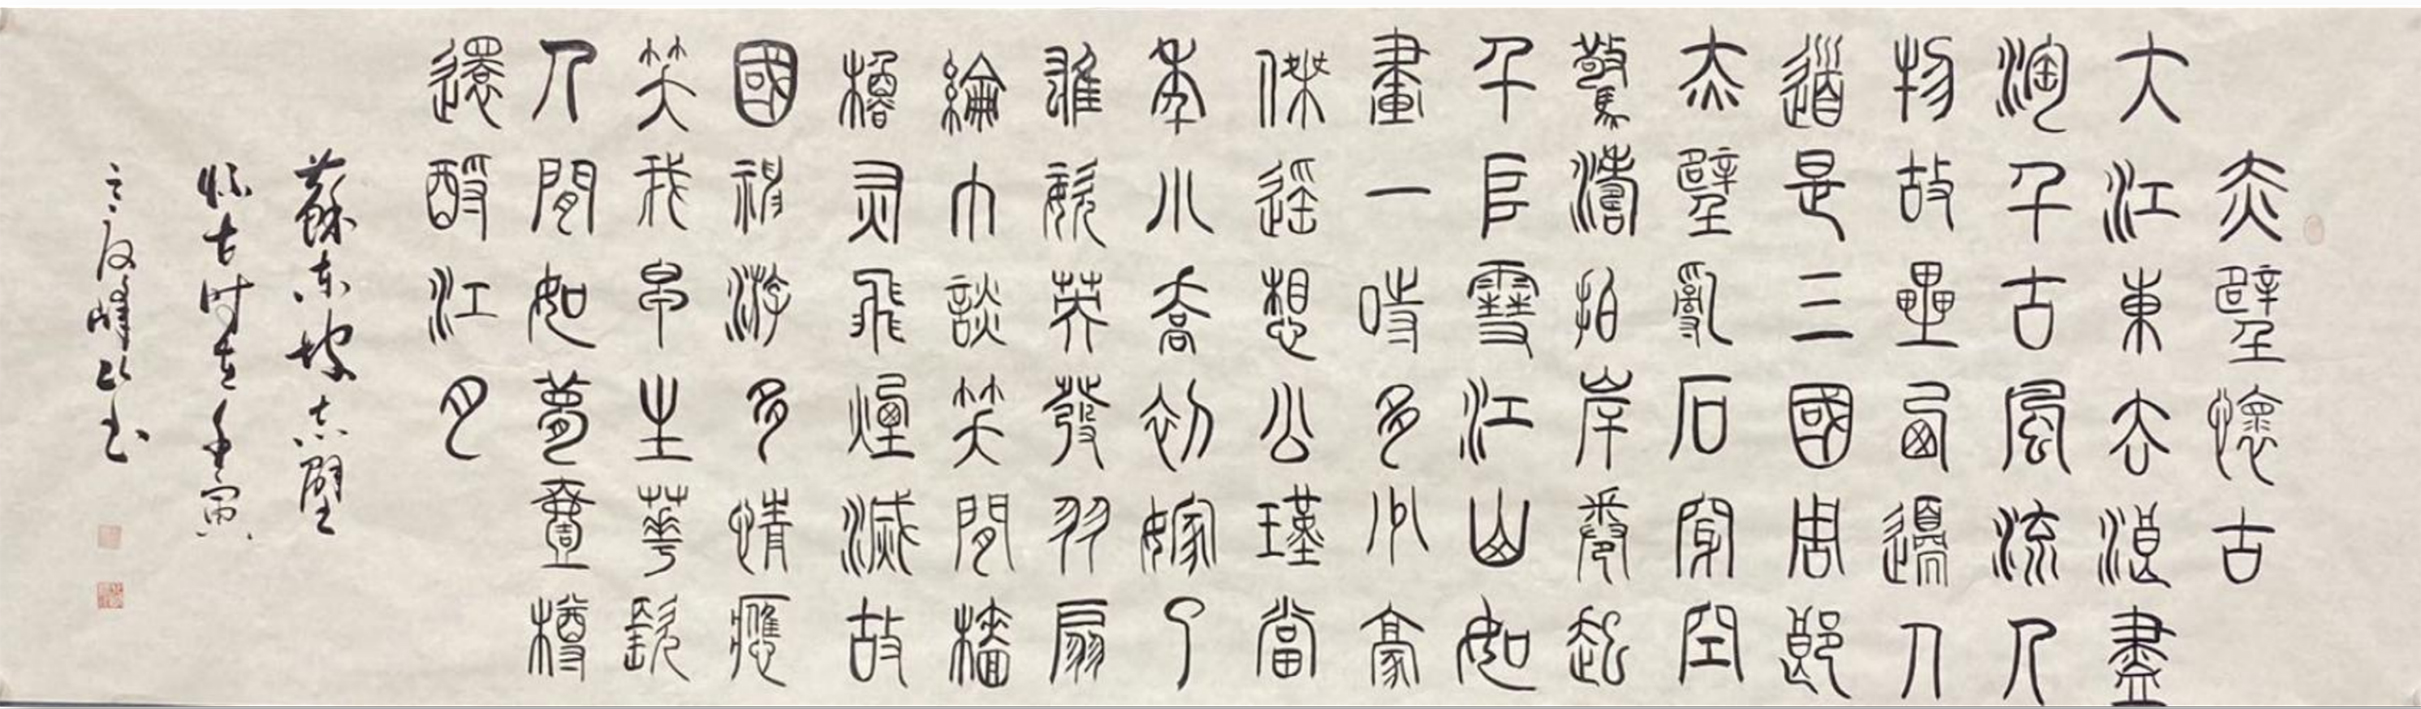 赤壁懷古
大江東去浪盡
淘千古風流人
物故壘西邊人
道是三國周郎
赤壁亂石穿空
驚濤拍岸卷起
千𠂤雪江山如
畫一時多少豪
傑遥想公瑾當
年小喬初嫁了
雄姿英發羽扇
綸巾談笑間檣
櫓灰飛煙滅故
國神游多情應
笑我早生華髮
人間如夢壹樽
還酹江月
蘇东坡赤壁
懷古时在壬寅
之夏峰书